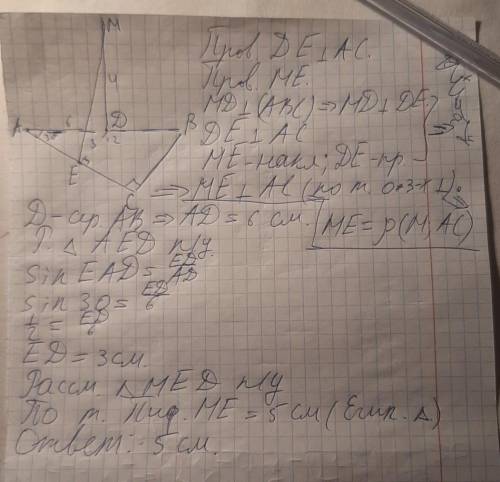 M
4
A
6
D
B
30°
3
12
E
C
Пров. DE⊥AC.
Пров. ME.
MD⊥(ABC)⇒MD⊥DE.
DE⊥AC
ME-накл; DE-пр-
⇒ME⊥AC (по т. о 3-х ⊥).
D-ср. AB ⇒ AD = 6 см.
ME = p(M, AC)
Р. △ AED п/у.
sin EAD = ED/AD
sin 30 = ED/6
1/2 = ED/6
ED = 3 см.
Рассм. △ MED п/у
По т. Пиф. ME = 5 см (Егип. △)
Ответ: 5 см.